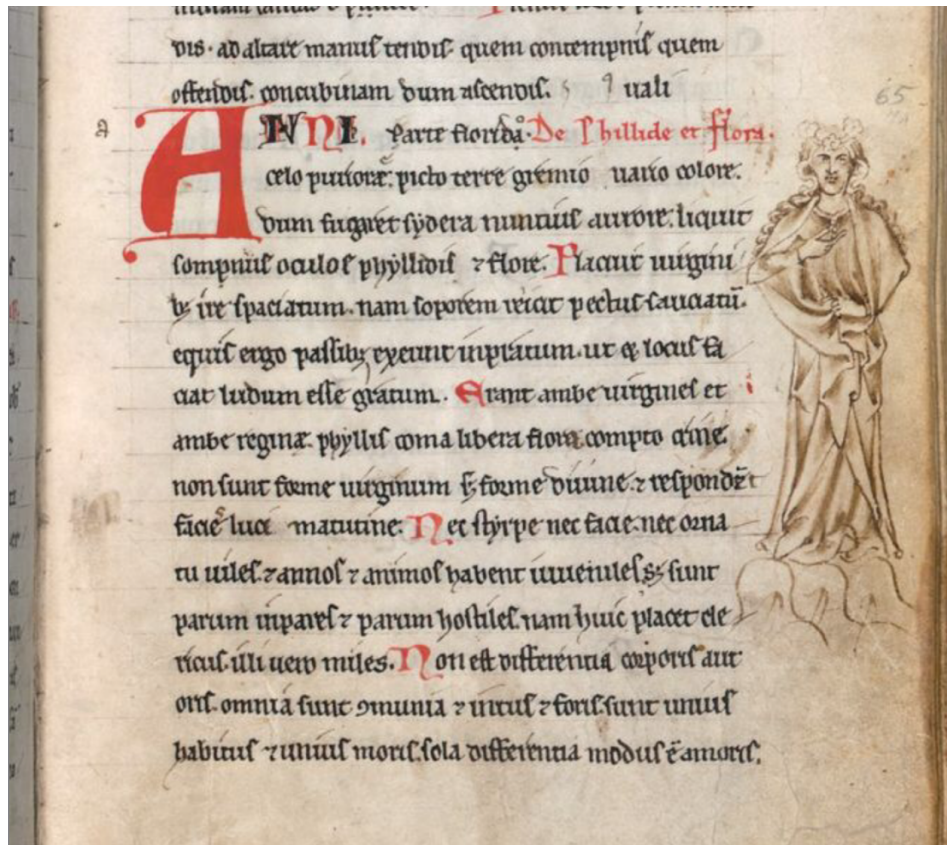 vis. ad altare manus tendis. quem contempnis quem
offendis. concubinam dum ascendis. uali
a ANNI. Parte florida. De Phillide et flora.
celo puriore. picto terre gremio uario colore.
dum fugaret sydera nuncius aurore. liquit
sompnus oculos phyllidis ⁊ flore. Placuit uirgini
bꝫ ire spaciatum. nam soporem reicit pectus sauciatū.
equis ergo passibꝫ exeunt inpratum. ut ⁊ locus fa
ciat ludum esse gratum. Erant ambe uirgines et
ambe regine. phyllis coma libera flora compto crine.
non sunt forme uirginum sꝫ forme diuine. ⁊ respondēt
facie luci matutine. Nec styrpe nec facie nec orna
tu uiles. ⁊ annos ⁊ animos habent iuueniles. sꝫ sunt
parum inpares ⁊ parum hostiles. nam huic placet cle
ricus. illi uero miles. Non est differentia corporis aut
oris. omnia sunt ꝯmunia ⁊ intus ⁊ foris. sunt unius
habitus ⁊ unius moris. sola differentia modus ē amoris.
65